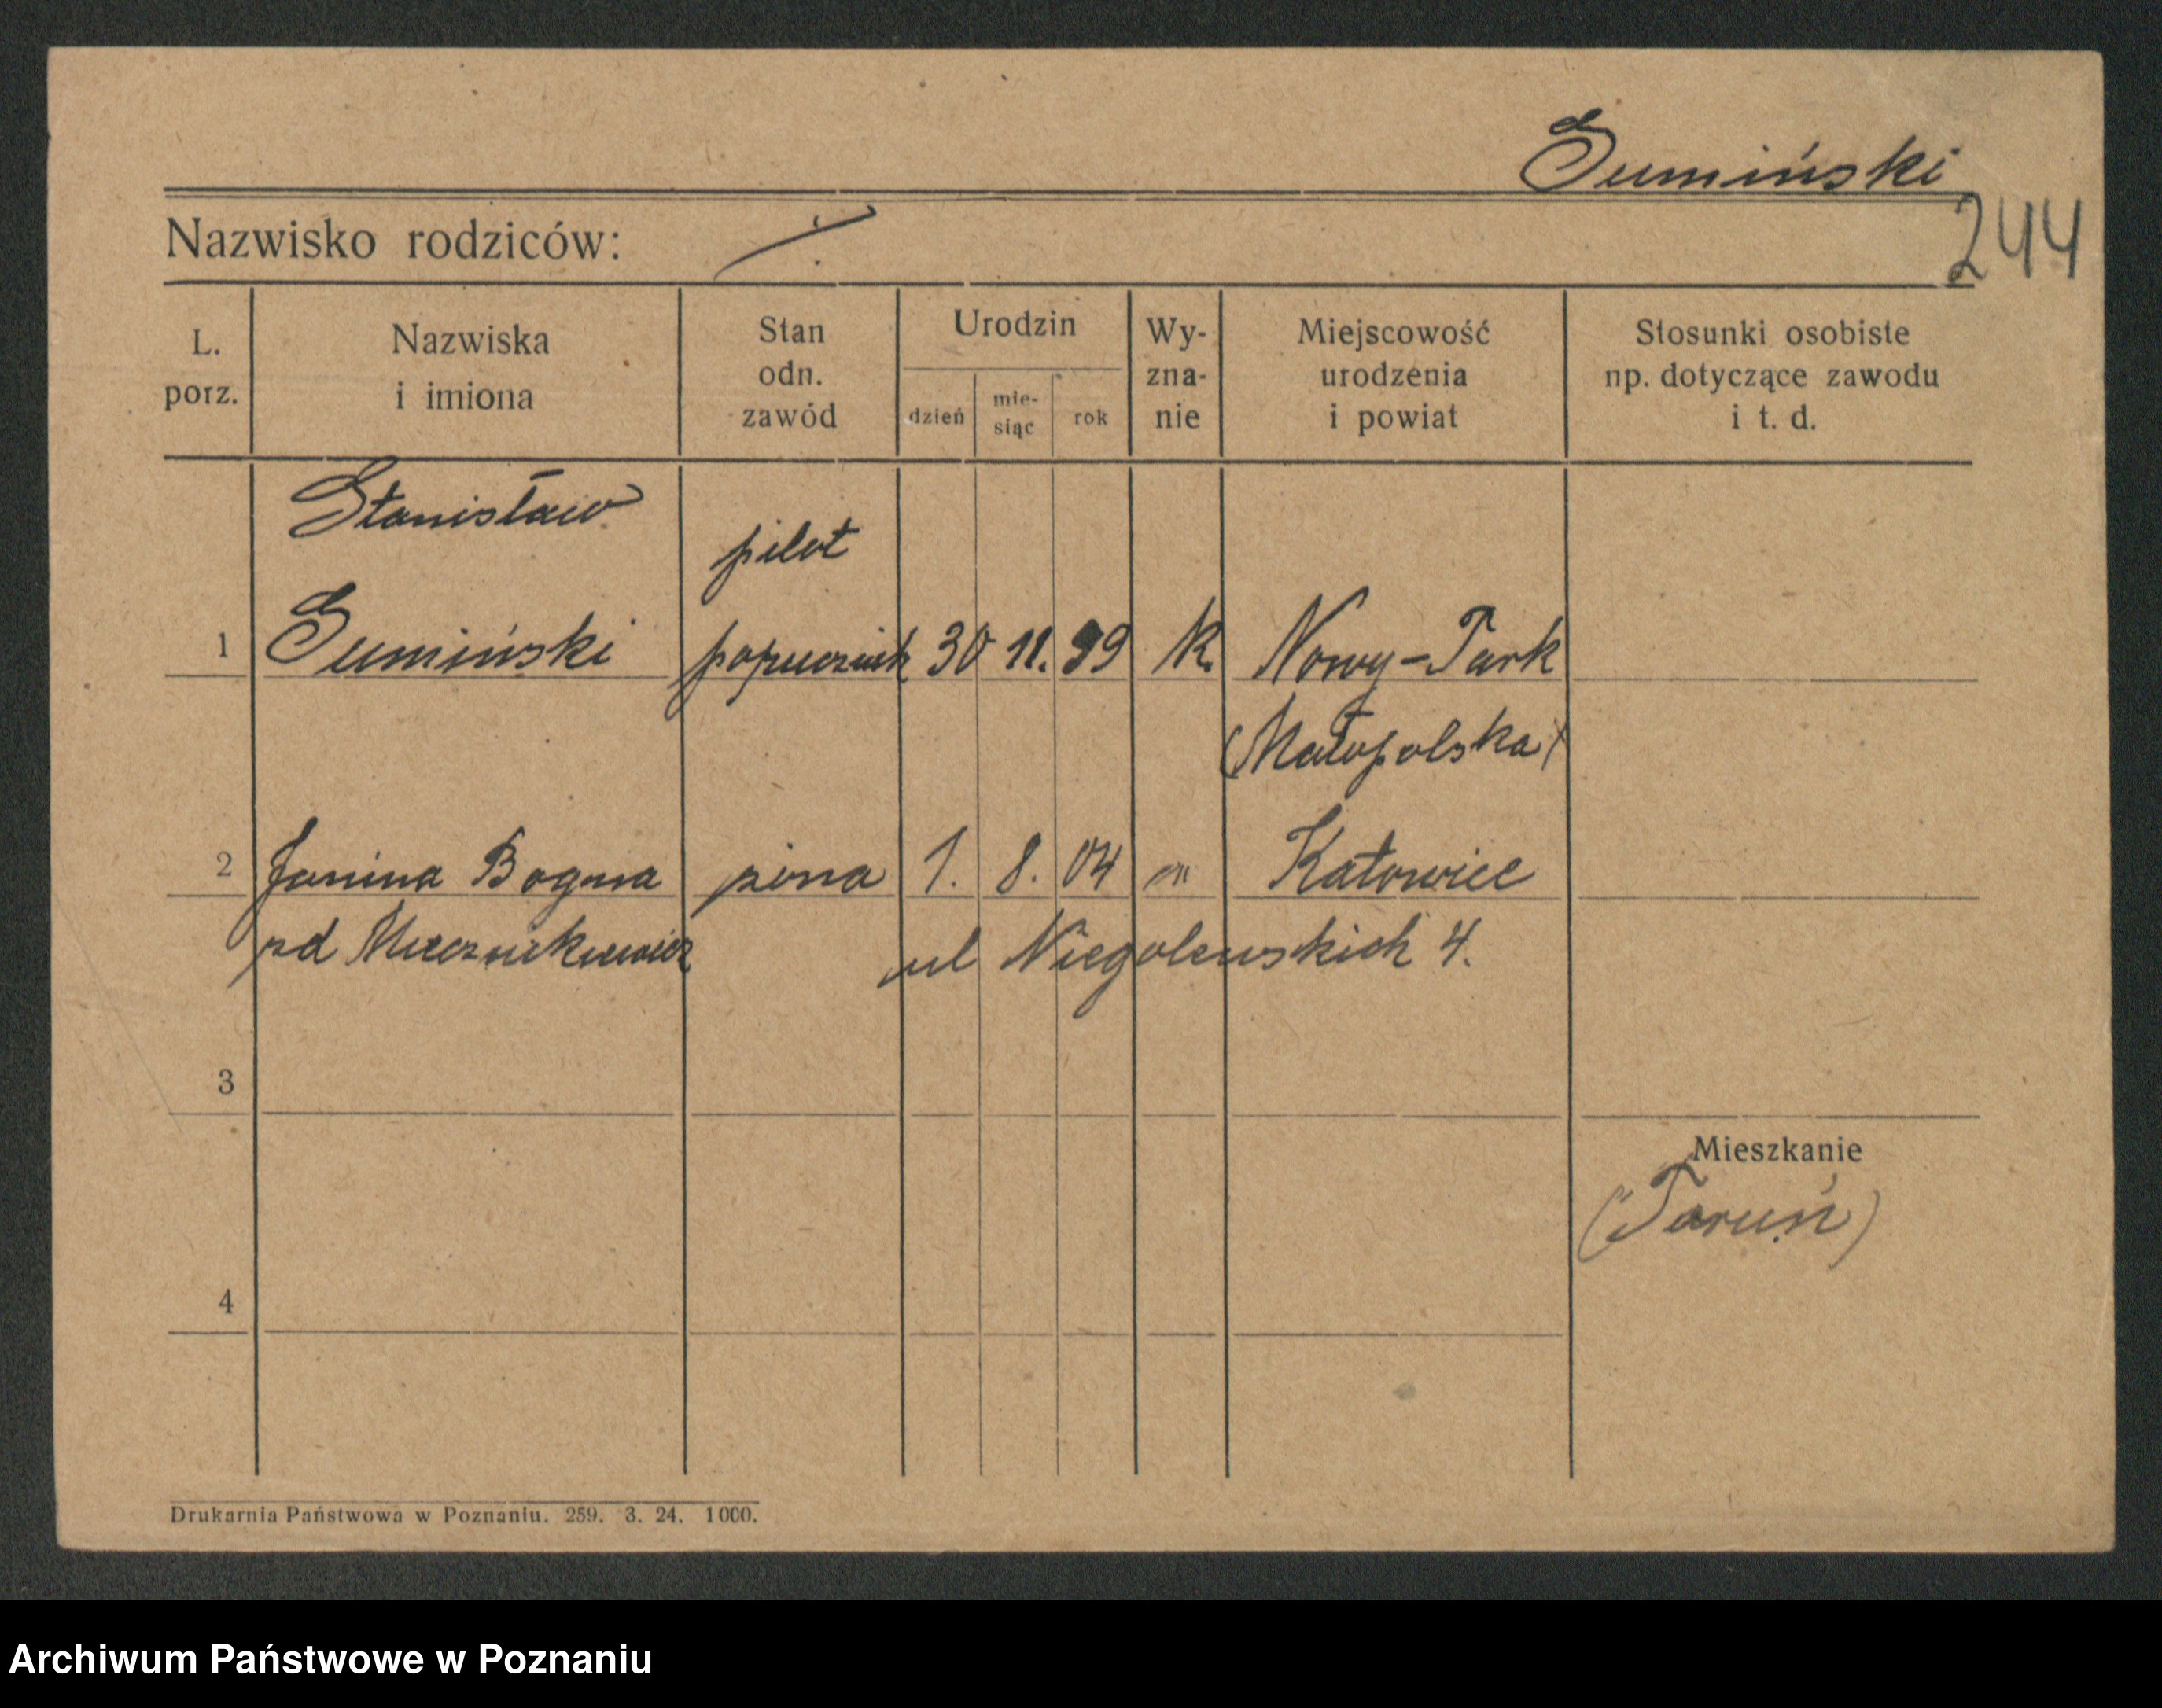 Sumiński
244
Nazwisko rodziców:
L. porz.
Nazwiska i imiona
Stan odn. zawód
Urodzin
dzień
mie-siąc
rok
Wy-zna-nie
Miejscowość urodzenia i powiat
Stosunki osobiste np. dotyczące zawodu i t. d.
Stanisław
pilot
1 Sumiński 30 11. 99 K. Nowy-Tark
(Małopolska)
2 Janina Bogna 1. 8. 04 Katowice
ul Niegolewskich 4.
3
Mieszkanie
(Toruń)
4
Drukarnia Państwowa w Poznaniu. 259. 3. 24. 1000.
Archiwum Państwowe w Poznaniu